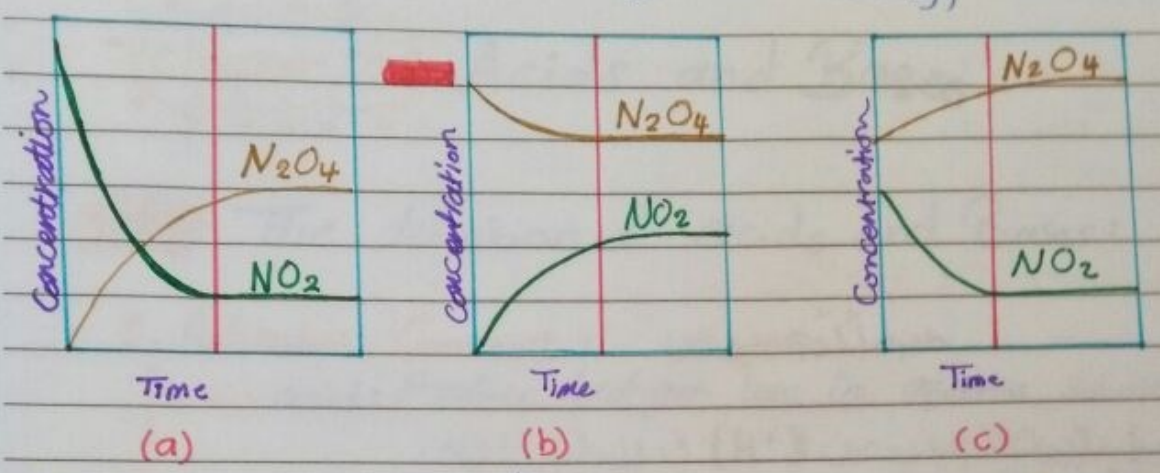 Concentration
N₂O₄
NO₂
Time
(a)
Concentration
N₂O₄
NO₂
Time
(b)
Concentration
N₂O₄
NO₂
Time
(c)